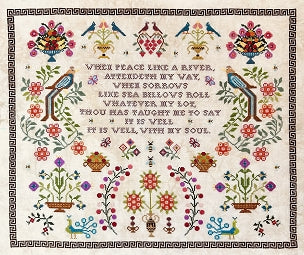 WHEN PEACE LIKE A RIVER,
ATTENDETH MY WAY,
WHEN SORROWS
LIKE SEA BILLOWS ROLL
WHATEVER MY LOT,
THOU HAS TAUGHT ME TO SAY
IT IS WELL
IT IS WELL, WITH MY SOUL.